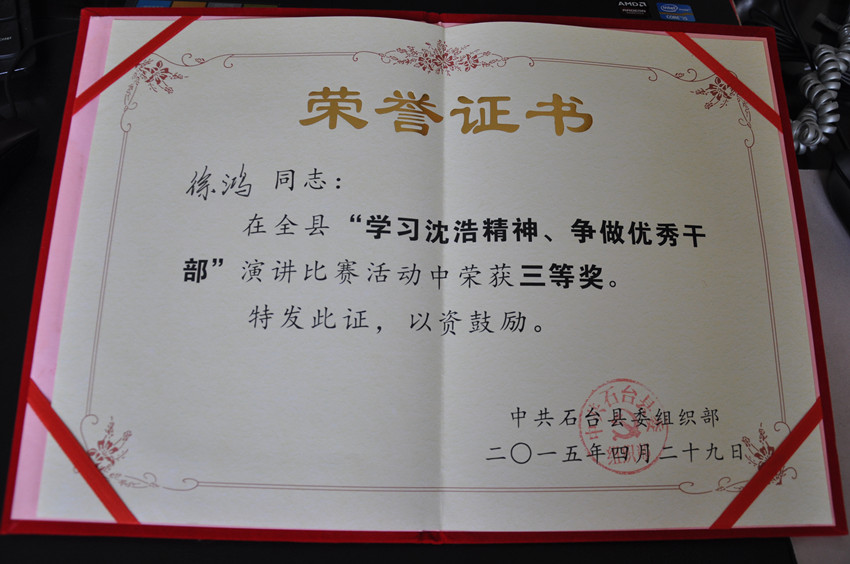 AMD
intel
荣誉证书
徐鸿 同志：
在全县“学习沈浩精神、争做优秀干
部”演讲比赛活动中荣获三等奖。
特发此证，以资鼓励。
中共石台县委组织部
二〇一五年四月二十九日